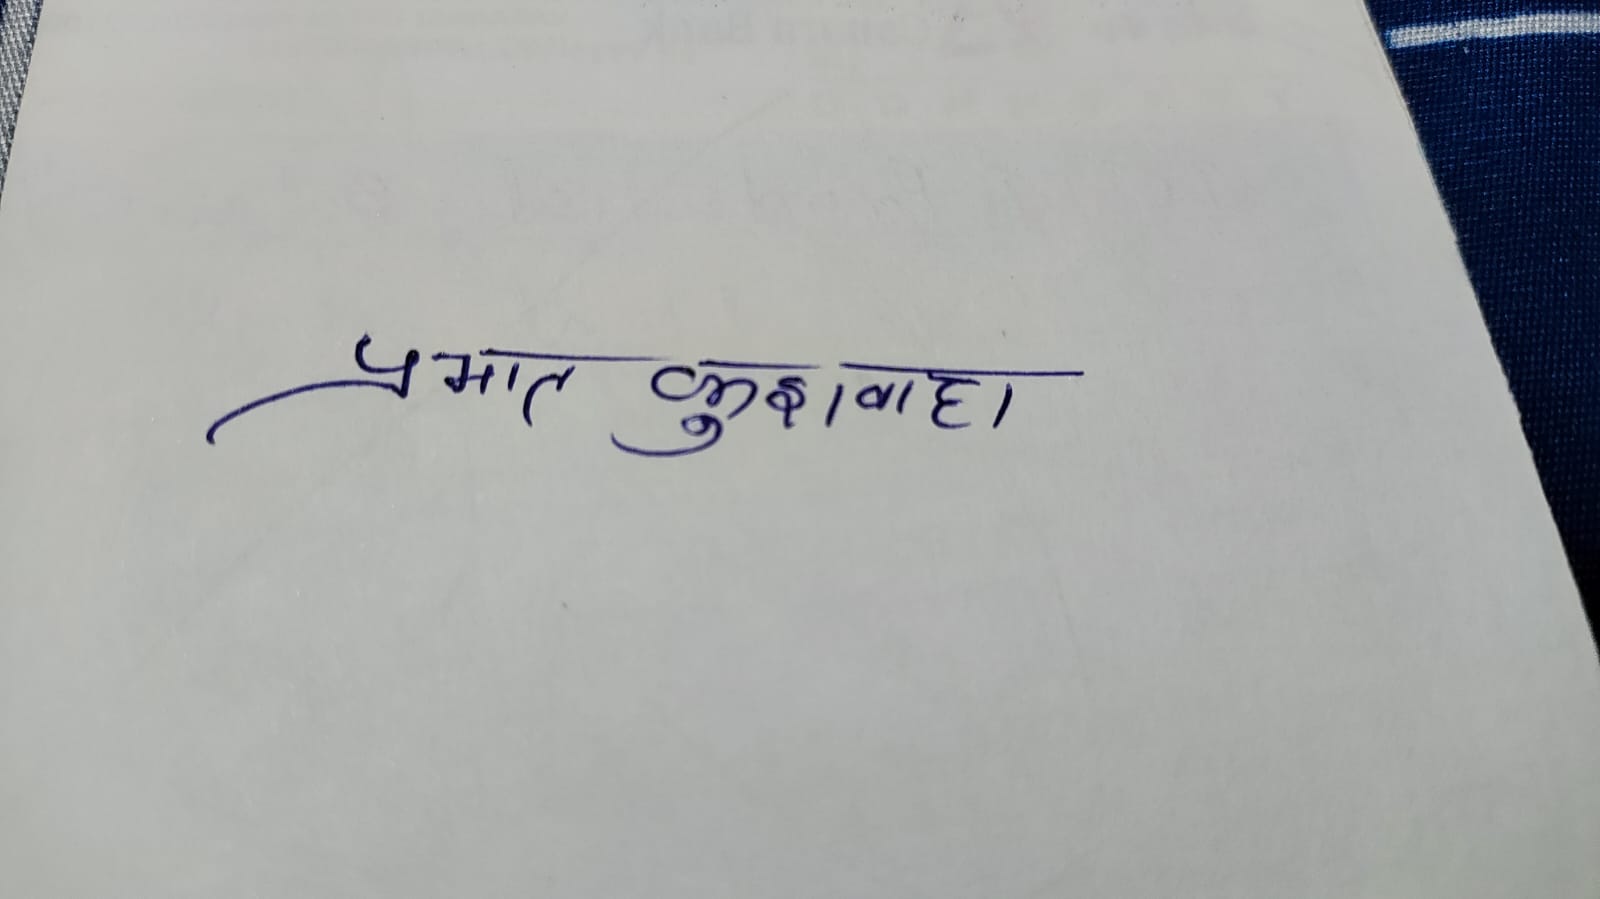 प्रभात कुशवाहा